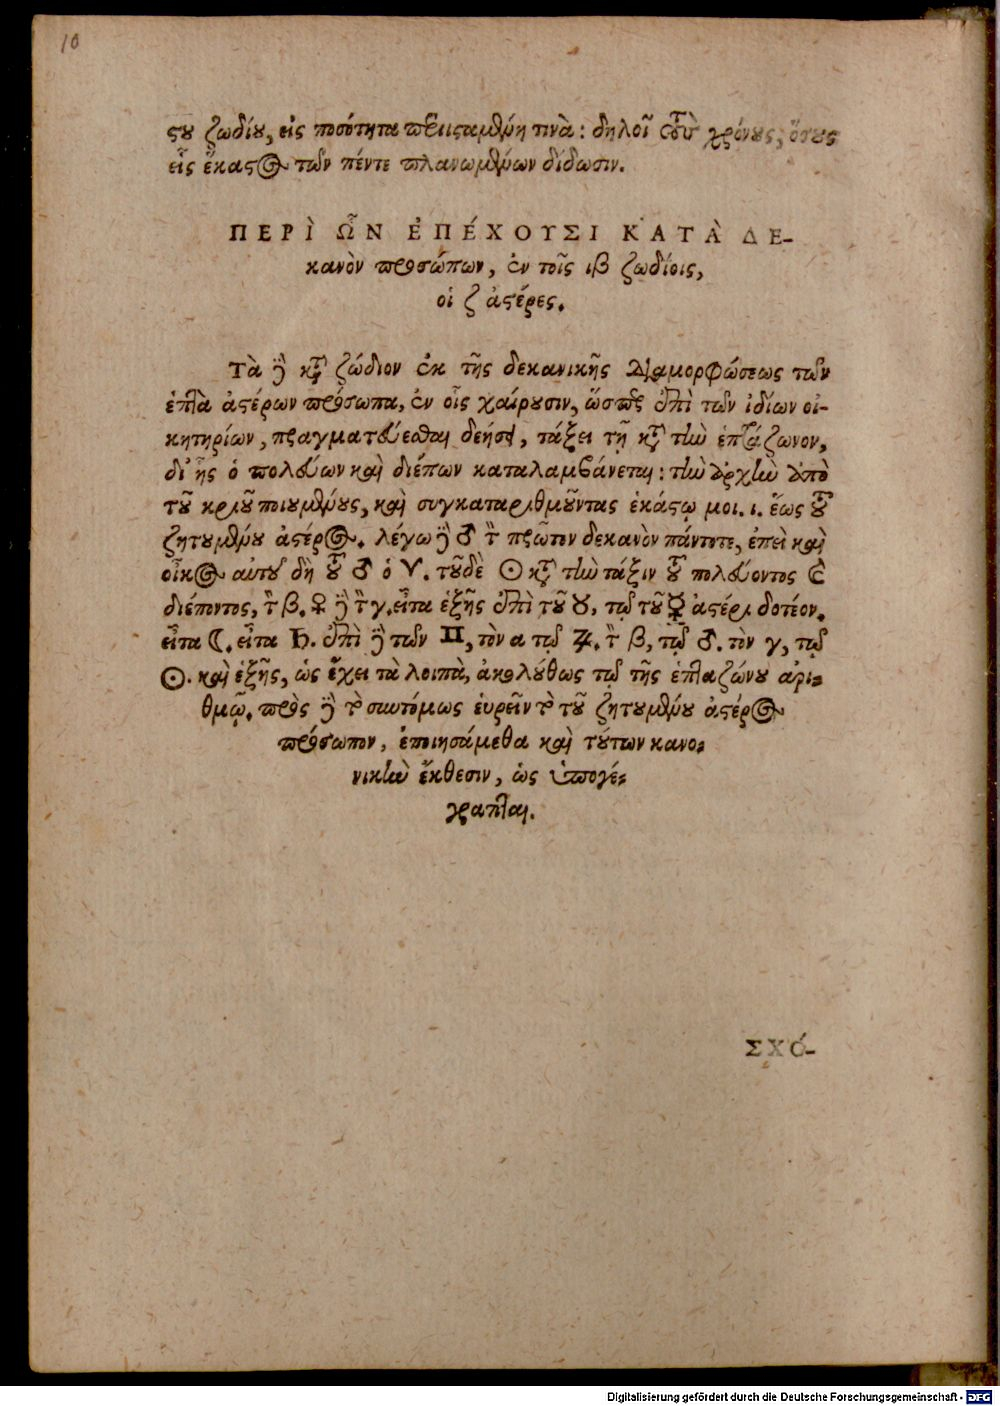 10
του ζωδίου, εἰς ποσότητα περιισταμένη τινὰ: δηλοῖ τοὺς χρόνους, ὅσους
εἷς ἕκαστος τῶν πέντε πλανωμένων δίδωσιν.
ΠΕΡῚ ὯΝ ἘΠΈΧΟΥΣΙ ΚΑΤᾺ ΔΕ-
κανὸν προσώπων, ἐν τοῖς ιβ ζωδίοις,
οἱ ζ ἀστέρες.
Τὰ δὲ κατὰ ζώδιον ἐκ τῆς δεκανικῆς διαμορφώσεως τῶν
ἑπτὰ ἀστέρων πρόσωπα, ἐν οἷς χαίρουσιν, ὥσπερ ἐπὶ τῶν ἰδίων οἰ-
κητηρίων, πραγματεύεσθαι δεήσει, τάξει τῇ κατὰ τὴν ἑπτάζωνον,
δι' ἧς ὁ πολεύων καὶ διέπων καταλαμβάνεται: τὴν ἀρχὴν ἀπὸ
τοῦ κριοῦ ποιουμένους, καὶ συγκαταριθμοῦντας ἑκάστῳ μοι. ι. ἕως τοῦ
ζητουμένου ἀστέρος. λέγω δὲ ♂ τὸν πρῶτον δεκανὸν πάντοτε, ἐπεὶ καὶ
οἶκος αὐτοῦ δὴ τοῦ ♂ ὁ ♈. τοῦδὲ ☉ κατὰ τὴν τάξιν τοῦ πολεύοντος ☾
διέποντος, τὸν β. ♀ δὲ τὸν γ. εἶτα ἑξῆς ἐπὶ τοῦ ♉, τῷ τοῦ ☿ ἀστέρι δοτέον.
εἶτα ☾. εἶτα ♄. ἐπὶ δὲ τῶν ♊, τὸν α τῷ ♃. τὸν β, τῷ ♂. τὸν γ, τῷ
☉. καὶ ἑξῆς, ὡς ἔχει τὰ λοιπὰ, ἀκολούθως τῷ τῆς ἑπταζώνου ἀρι-
θμῷ. πρὸς δὲ τὸ συντόμως εὑρεῖν τὸ τοῦ ζητουμένου ἀστέρος
πρόσωπον, ἐποιησάμεθα καὶ τούτων κανο-
νικὴν ἔκθεσιν, ὡς ὑπογέ-
γραπται.
ΣΧΌ-
Digitalisierung gefördert durch die Deutsche Forschungsgemeinschaft - DFG